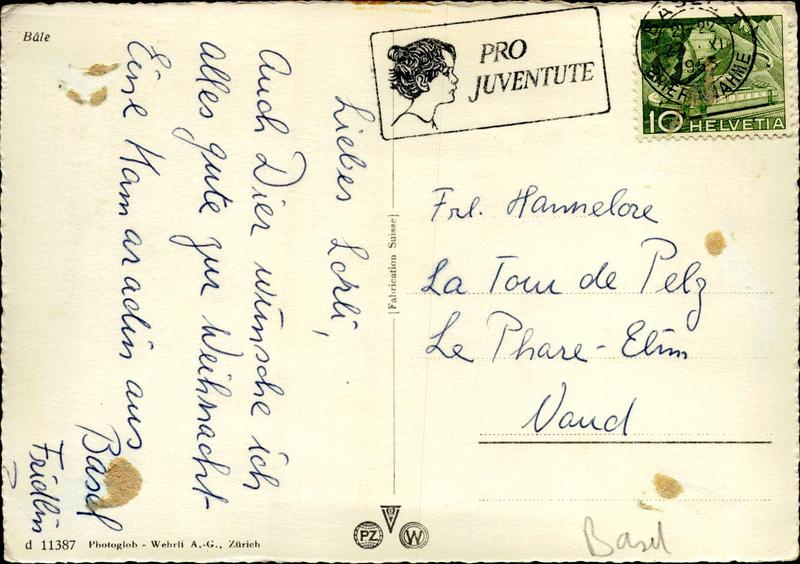 Bâle
Liebes Lorli,
Auch Dier wünsche ich
alles gute zur Weihnacht
Eine Kamaradin aus
Basel
Fridlin
d 11387 Photoglob - Wehrli A.-G., Zürich
Fabrication Suisse
PZ
W
PRO
JUVENTUTE
BASEL
21-22
XI
1955
BRIEFANNAHME
10 HELVETIA
Frl. Hannelore
La Tour de Pelz
Le Phare-Elim
Vaud
Basel